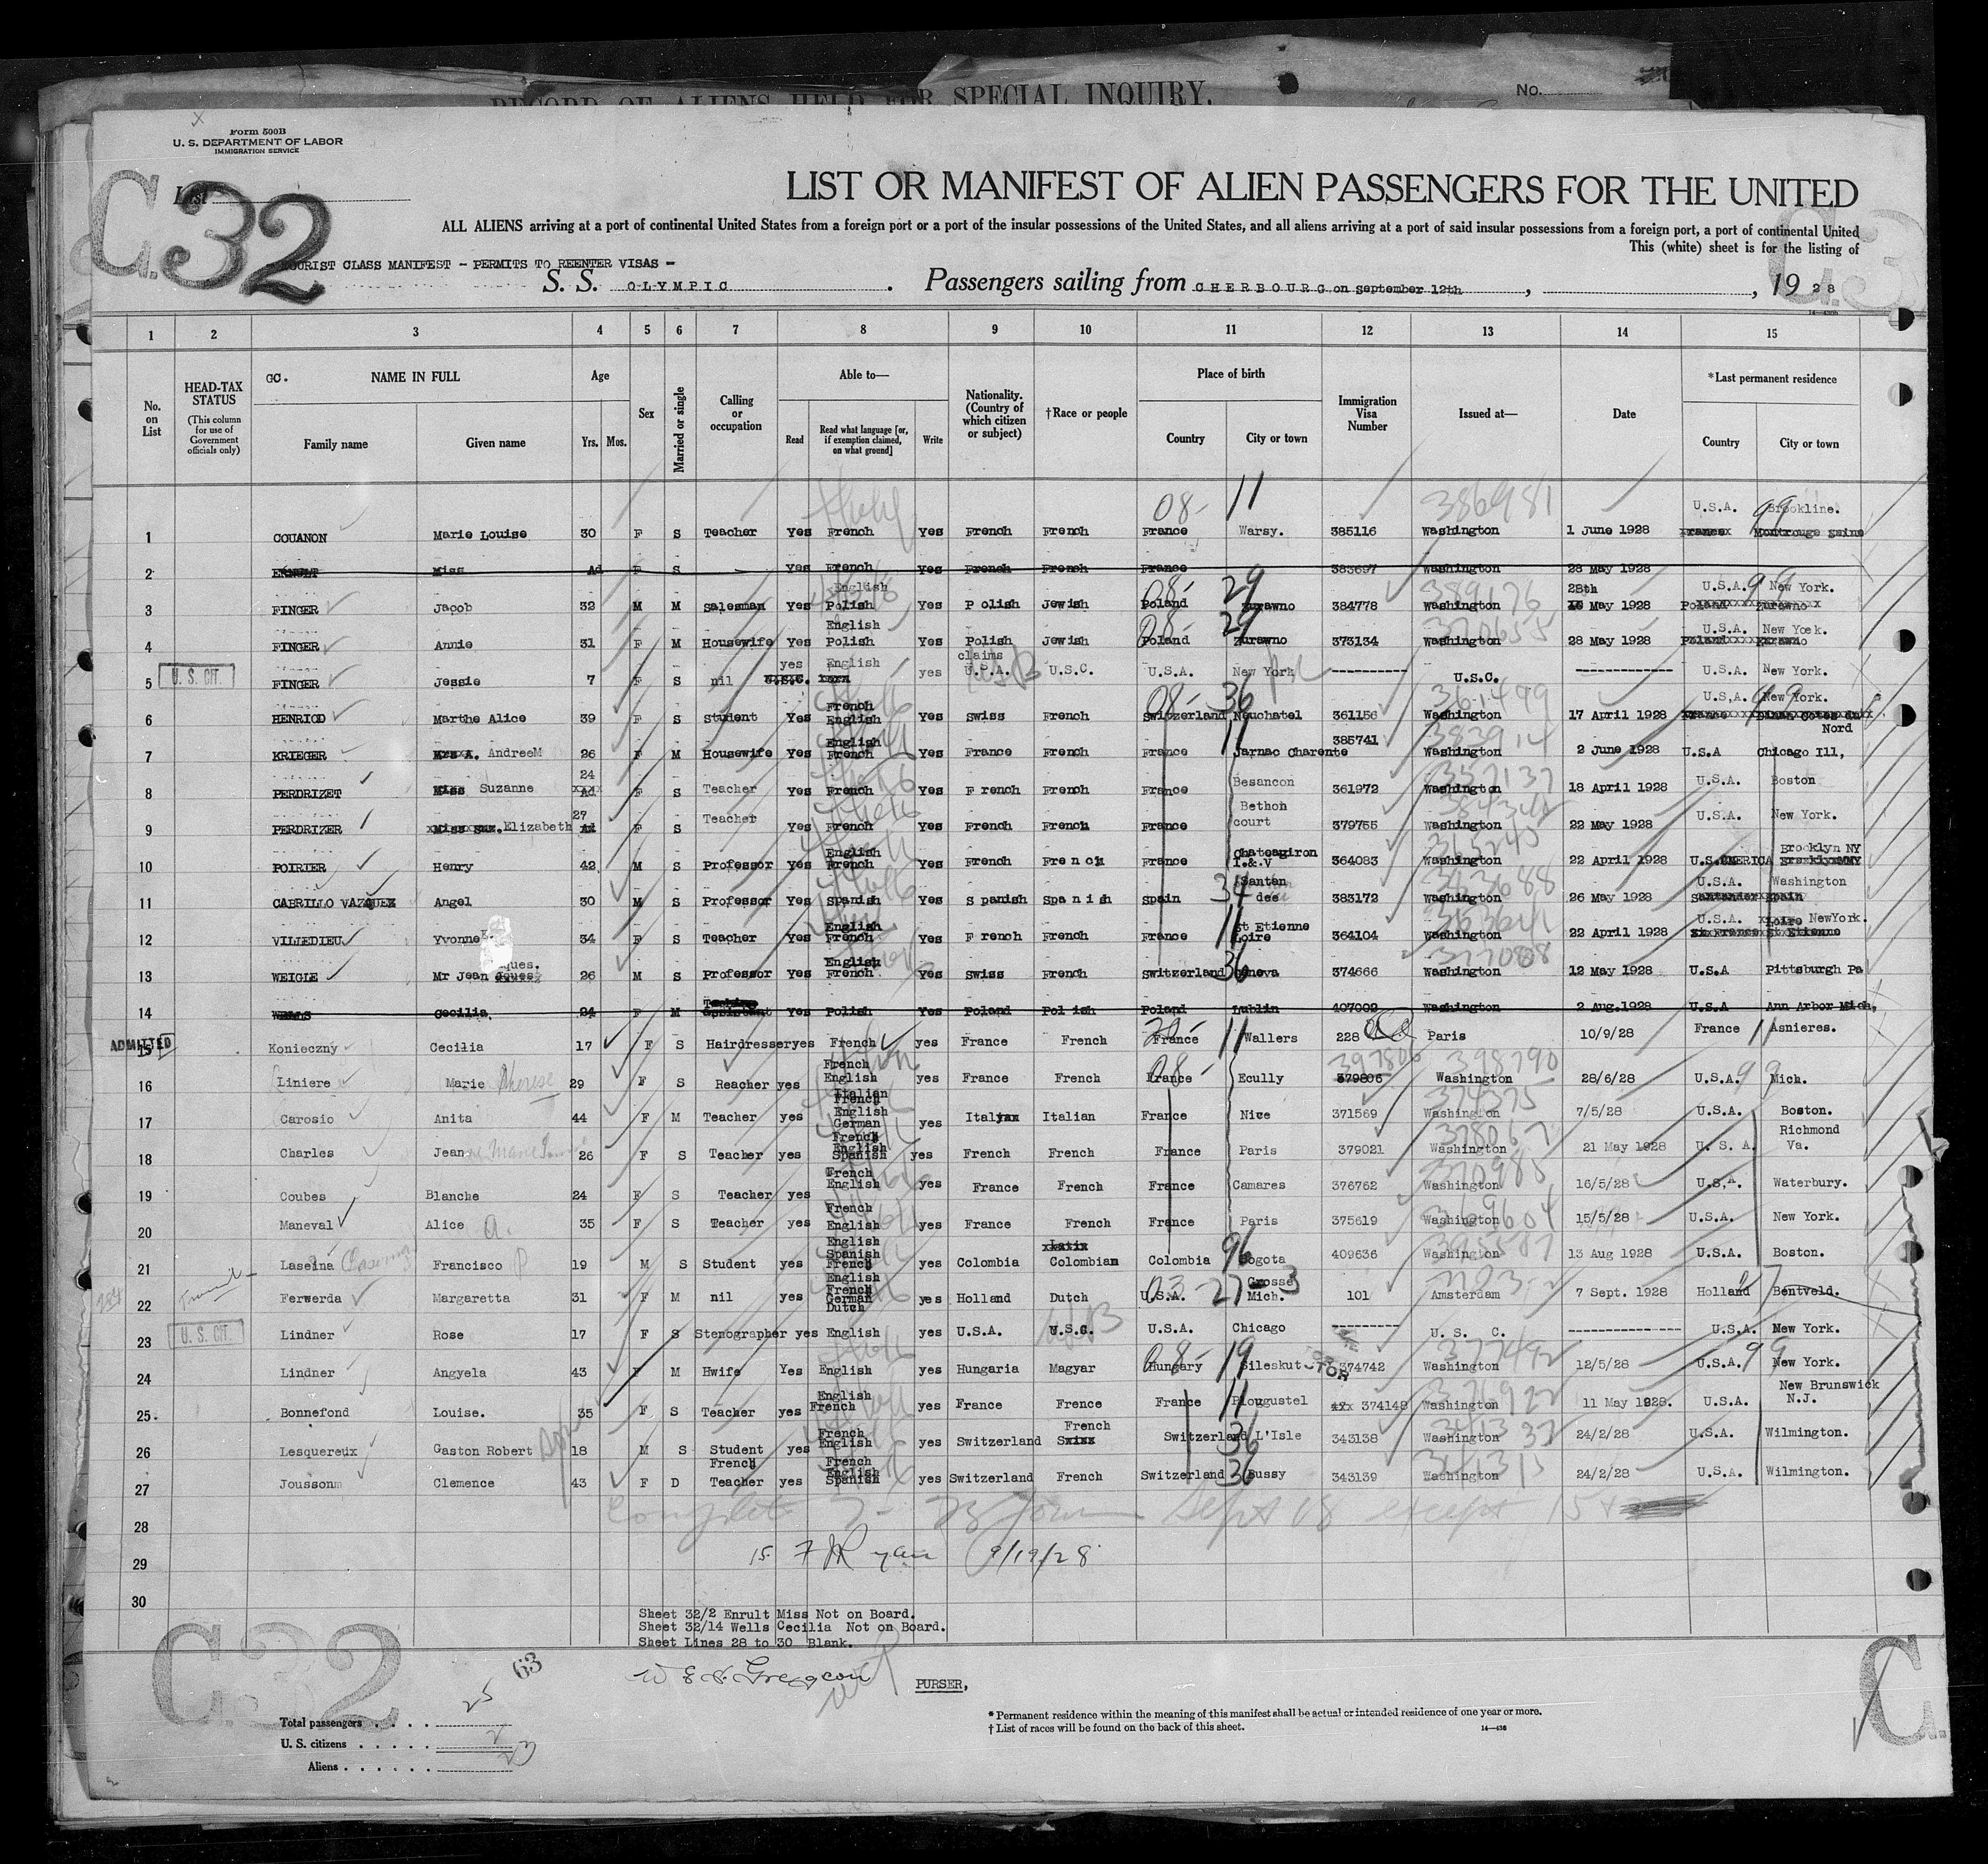 RECORD OF ALIENS HELD FOR SPECIAL INQUIRY.
No.
Form 500B
U. S. DEPARTMENT OF LABOR
IMMIGRATION SERVICE
List
C.32
LIST OR MANIFEST OF ALIEN PASSENGERS FOR THE UNITED
ALL ALIENS arriving at a port of continental United States from a foreign port or a port of the insular possessions of the United States, and all aliens arriving at a port of said insular possessions from a foreign port, a port of continental United
This (white) sheet is for the listing of
TOURIST CLASS MANIFEST - PERMITS TO REENTER VISAS -
S. S. OLYMPIC . Passengers sailing from CHERBOURG on September 12th , , 19 28
1 2 3 4 5 6 7 8 9 10 11 12 13 14 15
No. on List
HEAD-TAX STATUS (This column for use of Government officials only)
GC. NAME IN FULL
Family name Given name
Age Yrs. Mos.
Sex
Married or single
Calling or occupation
Able to—
Read Read what language [or, if exemption claimed, on what ground] Write
Nationality. (Country of which citizen or subject)
†Race or people
Place of birth
Country City or town
Immigration Visa Number
Issued at—
Date
*Last permanent residence
Country City or town
08- 11 386981 U.S.A. 99 Brookline.
1 COUANON Marie Louise 30 F S Teacher Yes French Yes French French France Warsy. 385116 Washington 1 June 1928
2 Miss Ad F S Yes French Yes French French France 383697 Washington 28 May 1928
3 FINGER Jacob 32 M M Salesman Yes English Polish Yes Polish Jewish Poland Zurawno 384778 Washington 28th May 1928 U.S.A. New York. Poland Zurawno
4 FINGER Annie 31 F M Housewife Yes English Polish Yes Polish Jewish Poland Zurawno 373134 Washington 28 May 1928 U.S.A. New Yoek.
5 U. S. CIT. FINGER Jessie 7 F S nil yes English yes claims U.S.C. U.S.A. New York ---------- U.S.C. ------------- U.S.A. New York.
6 HENRIOD Marthe Alice 39 F S Student Yes French English Yes Swiss French Switzerland Neuchatel 361156 Washington 17 April 1928 U.S.A. New York. Nord
7 KRIEGER Mrs A. AndreeM 26 F M Housewife Yes English French Yes France French France Jarnac Charente 385741 Washington 2 June 1928 U.S.A Chicago Ill,
8 PERDRIZET Miss Suzanne 24 F S Teacher Yes French Yes French French France Besancon 361972 Washington 18 April 1928 U.S.A. Boston
9 PERDRIZER Elizabeth 27 F S Teacher Yes French Yes French French France Bethoh court 379755 Washington 22 May 1928 U.S.A. New York.
10 POIRIER Henry 42 M S Professor Yes English French Yes French French France Chateagiron I.&.V 364083 Washington 22 April 1928 Brooklyn NY
11 CABRILLO VAZQUEZ Angel 30 M S Professor Yes Spanish Yes Spanish Spanish Spain Santan dee 383172 Washington 26 May 1928 U.S.A. Washington
12 VILLEDIEU Yvonne 34 F S Teacher Yes English French Yes French French France St Etienne Loire 364104 Washington 22 April 1928 U.S.A. NewYork.
13 WEIGLE Mr Jean ques. 26 M S Professor Yes English French Yes Swiss French Switzerland Geneva 374666 Washington 12 May 1928 U.S.A Pittsburgh Pa
14 WELLS Cecilia 24 F M Assistant Yes Polish Yes Poland Polish Poland Lublin 407002 Washington 2 Aug.1928 U.S.A Ann Arbor Mich,
ADMITTED 15 Konieczny Cecilia 17 F S Hairdresser yes French yes France French France 11 Wallers 228 Paris 10/9/28 France Asnieres.
16 Liniere Marie Therese 29 F S Reacher yes French English yes France French France Ecully 397806 379806 Washington 398790 28/6/28 U.S.A. Mich.
17 Carosio Anita 44 F M Teacher yes Italian French English German yes Italian France Nice 371569 Washington 7/5/28 U.S.A. Boston.
18 Charles Jean 26 F S Teacher yes French English Spanish yes French French France Paris 379021 Washington 21 May 1928 U. S. A. Richmond Va.
19 Coubes Blanche 24 F S Teacher yes French English yes France French France Camares 376762 Washington 370985 16/5/28 U.S.A. Waterbury.
20 Maneval Alice A. 35 F S Teacher yes French English yes France French France Paris 375619 Washington 15/5/28 U.S.A. New York.
21 Laseina Francisco 19 M S Student yes English Spanish French yes Colombia Colombian Colombia 96 Bogota 409636 Washington 13 Aug 1928 U.S.A. Boston.
22 Ferwerda Margaretta 31 F M nil yes English French German Dutch yes Holland Dutch U.S.A. Grosse Mich. 101 Amsterdam 7 Sept. 1928 Holland Bentveld.
23 U. S. CIT. Lindner Rose 17 F S Stenographer yes English yes U.S.A. U.S.C. U.S.A. Chicago ---------- U. S. C. -------------- U.S.A. New York.
24 Lindner Angyela 43 F M Hwife Yes English yes Hungaria Magyar Hungary 19 Sileskut 374742 Washington 377492 12/5/28 U.S.A. 99 New York.
25. Bonnefond Louise. 35 F S Teacher yes English French yes France Frence France 11 Plougustel 374148 Washington 11 May 1928. U.S.A. New Brunswick N.J.
26 Lesquereux Gaston Robert 18 M S Student yes French English yes Switzerland French Swiss Switzerland L'Isle 36 343138 Washington 24/2/28 U.S.A. Wilmington.
27 Joussonm Clemence 43 F D French Teacher yes French English Spanish yes Switzerland French Switzerland 36 Bussy 343139 Washington 24/2/28 U.S.A. Wilmington.
28 Sept 18 except 15
29 15. F J Ryan 9/19/28
30
Sheet 32/2 Enrult Miss Not on Board.
Sheet 32/14 Wells Cecilia Not on Board.
Sheet Lines 28 to 30 Blank.
C.32
63
PURSER,
Total passengers . . . . 25
U. S. citizens . . . . . 2
Aliens . . . . . . 23
* Permanent residence within the meaning of this manifest shall be actual or intended residence of one year or more.
† List of races will be found on the back of this sheet.
14—436